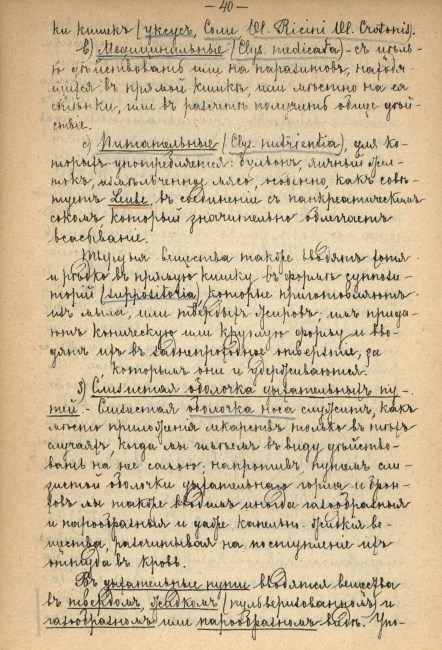 — 40 —
ки кишекъ (уксусъ, Соли Ol. Ricini Ol. Crotonis).
b) Медицинальные (Clys. medicata) – съ цѣль-
ю дѣйствовать или на паразитовъ, находя-
щихся въ прямой кишкѣ, или мѣстно на ея
стѣнки, или въ расчетѣ получить общее дѣй-
ствіе.
c) Питательные (Clys. nutrientia), для ко-
торыхъ употребляется: бульонъ, яичный жел-
токъ, измельченное мясо, особенно, какъ совѣ-
туетъ Leube, въ соединеніи съ панкреатическимъ
сокомъ, который значительно облегчаетъ
всасываніе.
Твердыя вещества также вводятъ хотя
и рѣдко въ прямую кишку въ формѣ суппози-
торій (suppositoria), которые приготовляютъ
изъ мыла, или твердыхъ жировъ; имъ прида-
ютъ коническую или круглую форму и вво-
дятъ ихъ въ заднепроходное отверстіе, за
которымъ они и удерживаются.
3) Слизистая оболочка дыхательныхъ пу-
тей. – Слизистая оболочка носа служитъ, какъ
мѣсто приложенія лекарствъ только въ тѣхъ
случаяхъ, когда мы имѣемъ въ виду дѣйство-
вать на нее самою; напротивъ, путемъ сли-
зистой оболочки дыхательнаго горла и брон-
ховъ мы также вводимъ иногда газообразныя
и парообразныя и даже капельно-жидкія ве-
щества, разсчитывая на поступленіе ихъ
оттуда въ кровь.
Въ дыхательные пути вводятся вещества
въ твердомъ, жидкомъ (пульверизованномъ) и
газообразномъ или парообразномъ видѣ. Упо-